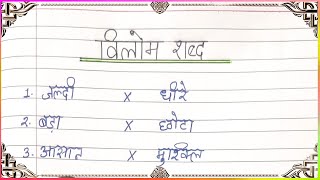 विलोम शब्द
1. जल्दी x धीरे
2. बड़ा x छोटा
3. आसान x मुश्किल